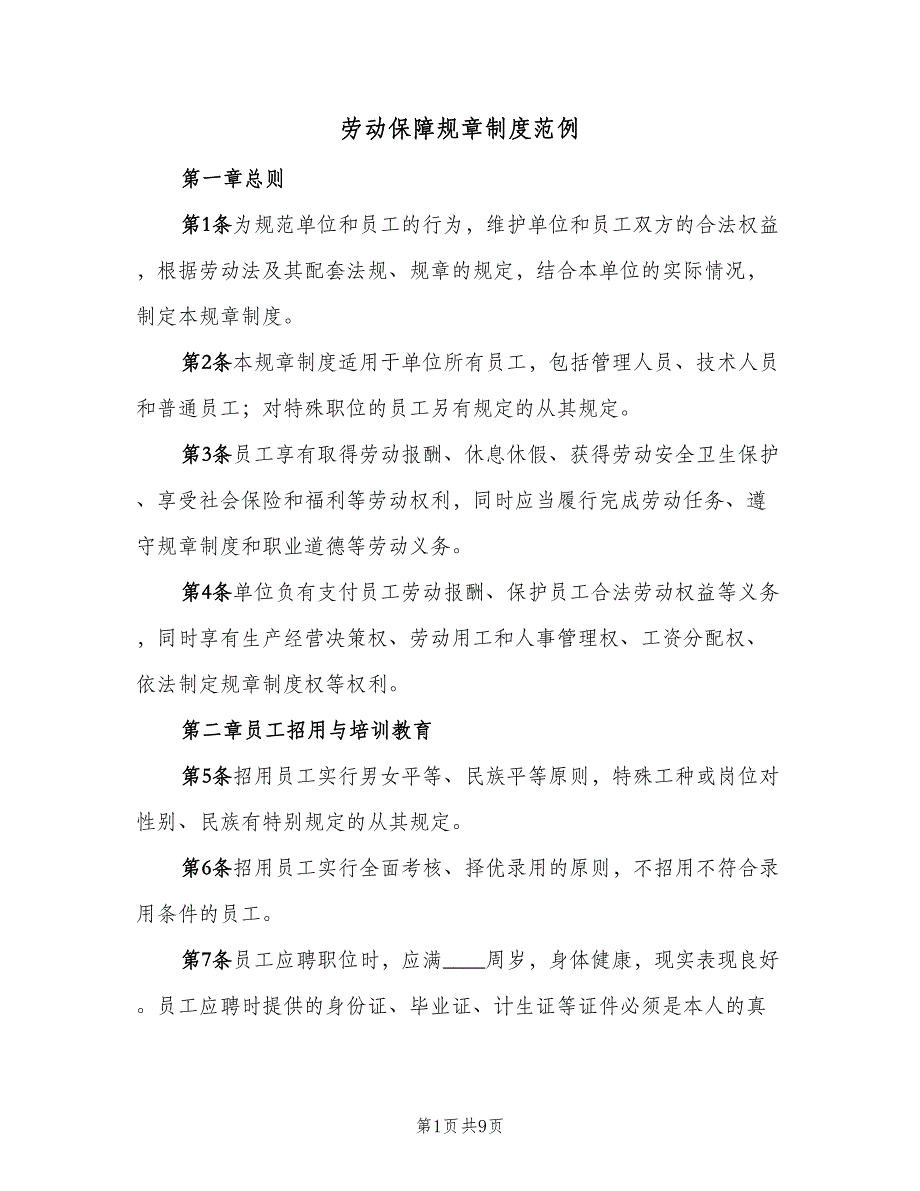 劳动保障规章制度范例
第一章总则
第1条为规范单位和员工的行为，维护单位和员工双方的合法权益
，根据劳动法及其配套法规、规章的规定，结合本单位的实际情况，
制定本规章制度。
第2条本规章制度适用于单位所有员工，包括管理人员、技术人员
和普通员工；对特殊职位的员工另有规定的从其规定。
第3条员工享有取得劳动报酬、休息休假、获得劳动安全卫生保护
、享受社会保险和福利等劳动权利，同时应当履行完成劳动任务、遵
守规章制度和职业道德等劳动义务。
第4条单位负有支付员工劳动报酬、保护员工合法劳动权益等义务
，同时享有生产经营决策权、劳动用工和人事管理权、工资分配权、
依法制定规章制度权等权利。
第二章员工招用与培训教育
第5条招用员工实行男女平等、民族平等原则，特殊工种或岗位对
性别、民族有特别规定的从其规定。
第6条招用员工实行全面考核、择优录用的原则，不招用不符合录
用条件的员工。
第7条员工应聘职位时，应满____周岁，身体健康，现实表现良好
。员工应聘时提供的身份证、毕业证、计生证等证件必须是本人的真
第1页共9页